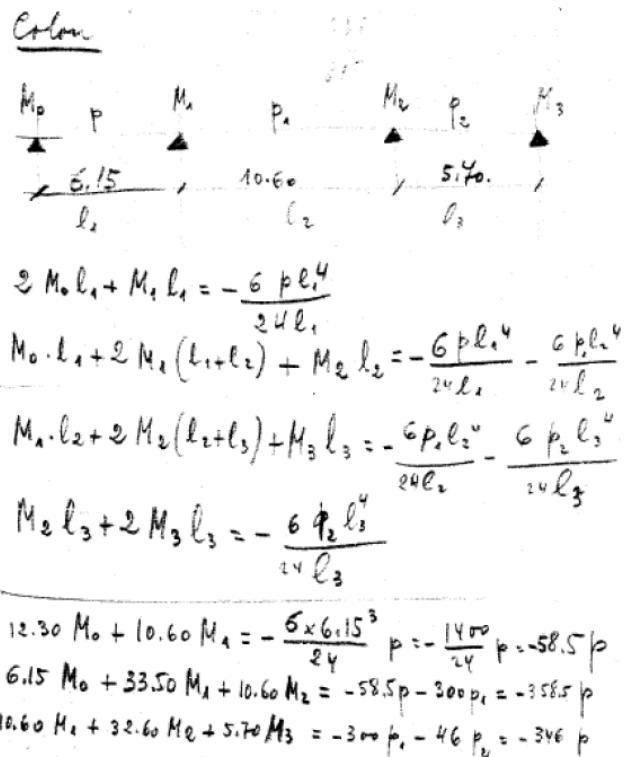 Colon
M₀ p M₁ p₁ M₂ p₂ M₃
6.15 10.60 5.70.
l₁ l₂ l₃
2 M₀ l₁ + M₁ l₁ = - 6 p l₁⁴ / 24 l₁
M₀ · l₁ + 2 M₁ (l₁ + l₂) + M₂ l₂ = - 6 p l₁⁴ / 24 l₁ - 6 p₁ l₂⁴ / 24 l₂
M₁ · l₂ + 2 M₂ (l₂ + l₃) + M₃ l₃ = - 6 p₁ l₂⁴ / 24 l₂ - 6 p₂ l₃⁴ / 24 l₃
M₂ l₃ + 2 M₃ l₃ = - 6 p₂ l₃⁴ / 24 l₃
12.30 M₀ + 10.60 M₁ = - 6 x 6.15³ / 24 p = - 1400 / 24 p = -58.5 p
6.15 M₀ + 33.50 M₁ + 10.60 M₂ = -58.5 p - 300 p₁ = -358.5 p
10.60 M₁ + 32.60 M₂ + 5.70 M₃ = -300 p₁ - 46 p₂ = -346 p